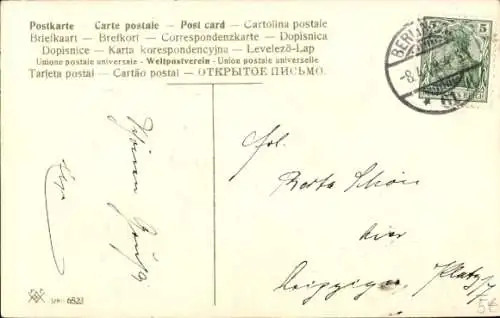 Postkarte - Carte postale - Post card - Cartolina postale
Briefkaart - Brefkort - Correspondenzkarte - Dopisnica
Dopisnice - Karta korespondencyjna - Levelező-Lap
Unione postale universale - Weltpostverein - Union postale universelle
Tarjeta postal - Cartão postal - ОТКРЫТОЕ ПИСЬМО.
BERLIN
5
Frl.
Berta Schön
hier
Leipziger Platz
5€